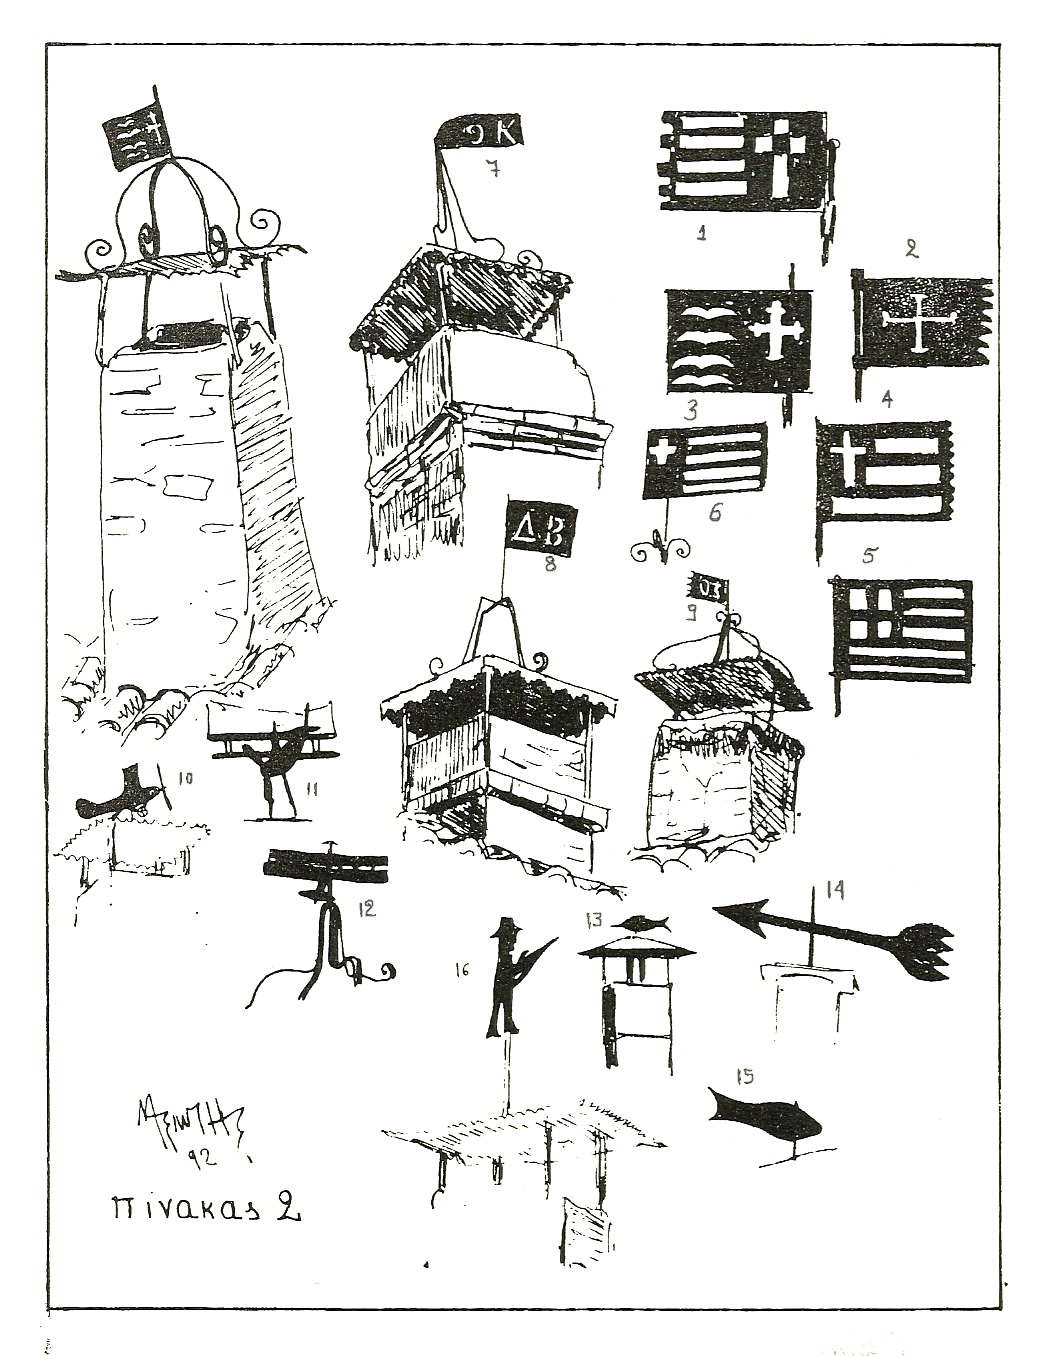 ΟΚ
7
1
2
3
4
6
5
ΔΒ
8
9
10
11
12
13
14
16
15
92
Πίνακας 2